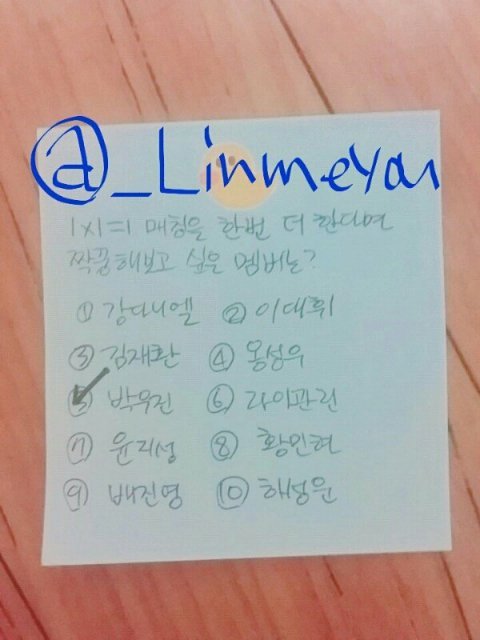 1x1=1 매칭을 한번 더 한다면
짝꿍해보고 싶은 멤버는?
① 강다니엘 ② 이대휘
③ 김재환 ④ 옹성우
⑤ 박우진 ⑥ 라이관린
⑦ 윤지성 ⑧ 황민현
⑨ 배진영 ⑩ 하성운